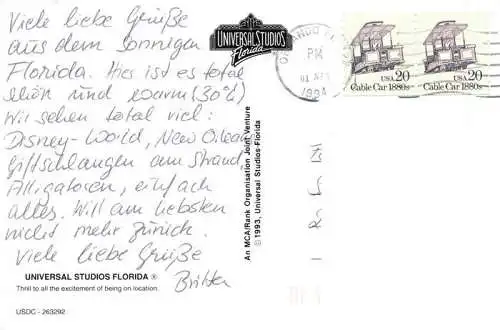 Viele liebe Grüße
aus dem sonnigen
Florida. Hier ist es total
schön und warm (30°C)
Wir sehen total viel:
Disney-World, New Orleans
Giftschlangen am Strand,
Alligatoren, einfach
alles. Will am liebsten
nicht mehr zurück.
Viele liebe Grüße
UNIVERSAL STUDIOS FLORIDA ®
Thrill to all the excitement of being on location.
USDC - 263292
UNIVERSAL STUDIOS
Florida
An MCA/Rank Organisation Joint Venture
© 1993, Universal Studios-Florida
ORLANDO FL
PM
01
1994
USA 20
Cable Car 1880s
USA 20
Cable Car 1880s